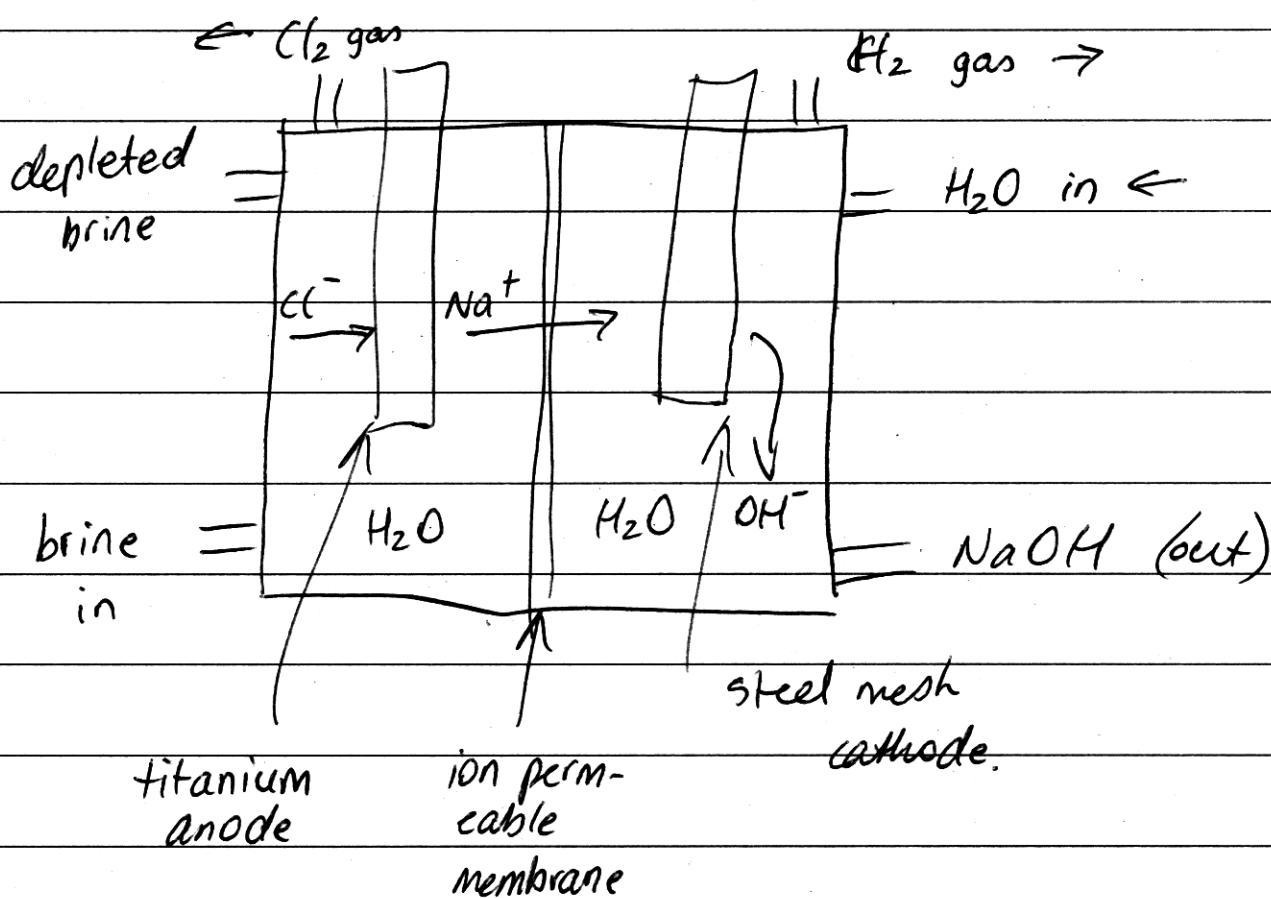 ← Cl₂ gas
H₂ gas →
depleted
brine
H₂O in ←
Cl⁻
Na⁺
brine
in
H₂O
H₂O
OH⁻
NaOH (out)
steel mesh
cathode.
titanium
anode
ion perm-
eable
membrane